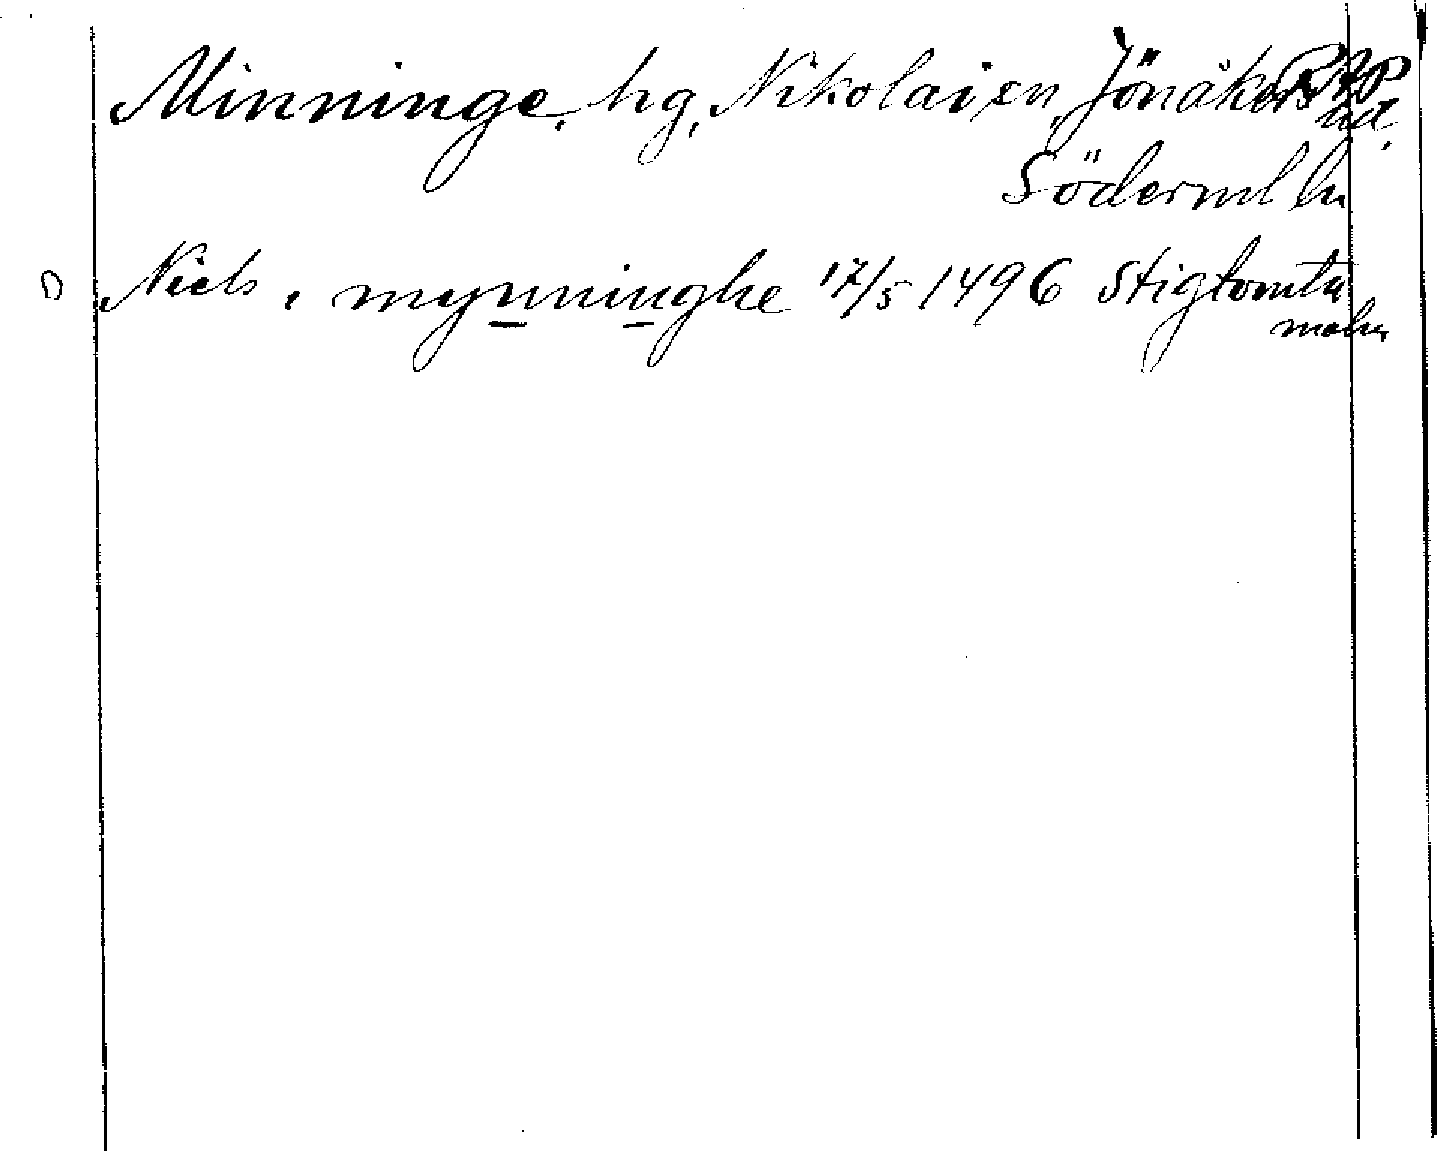 Minninge, hg, Nikolai sn, Jönåkers hd,
Söderml ln
D Niels i mynninghe 17/5 1496 Stigtomta